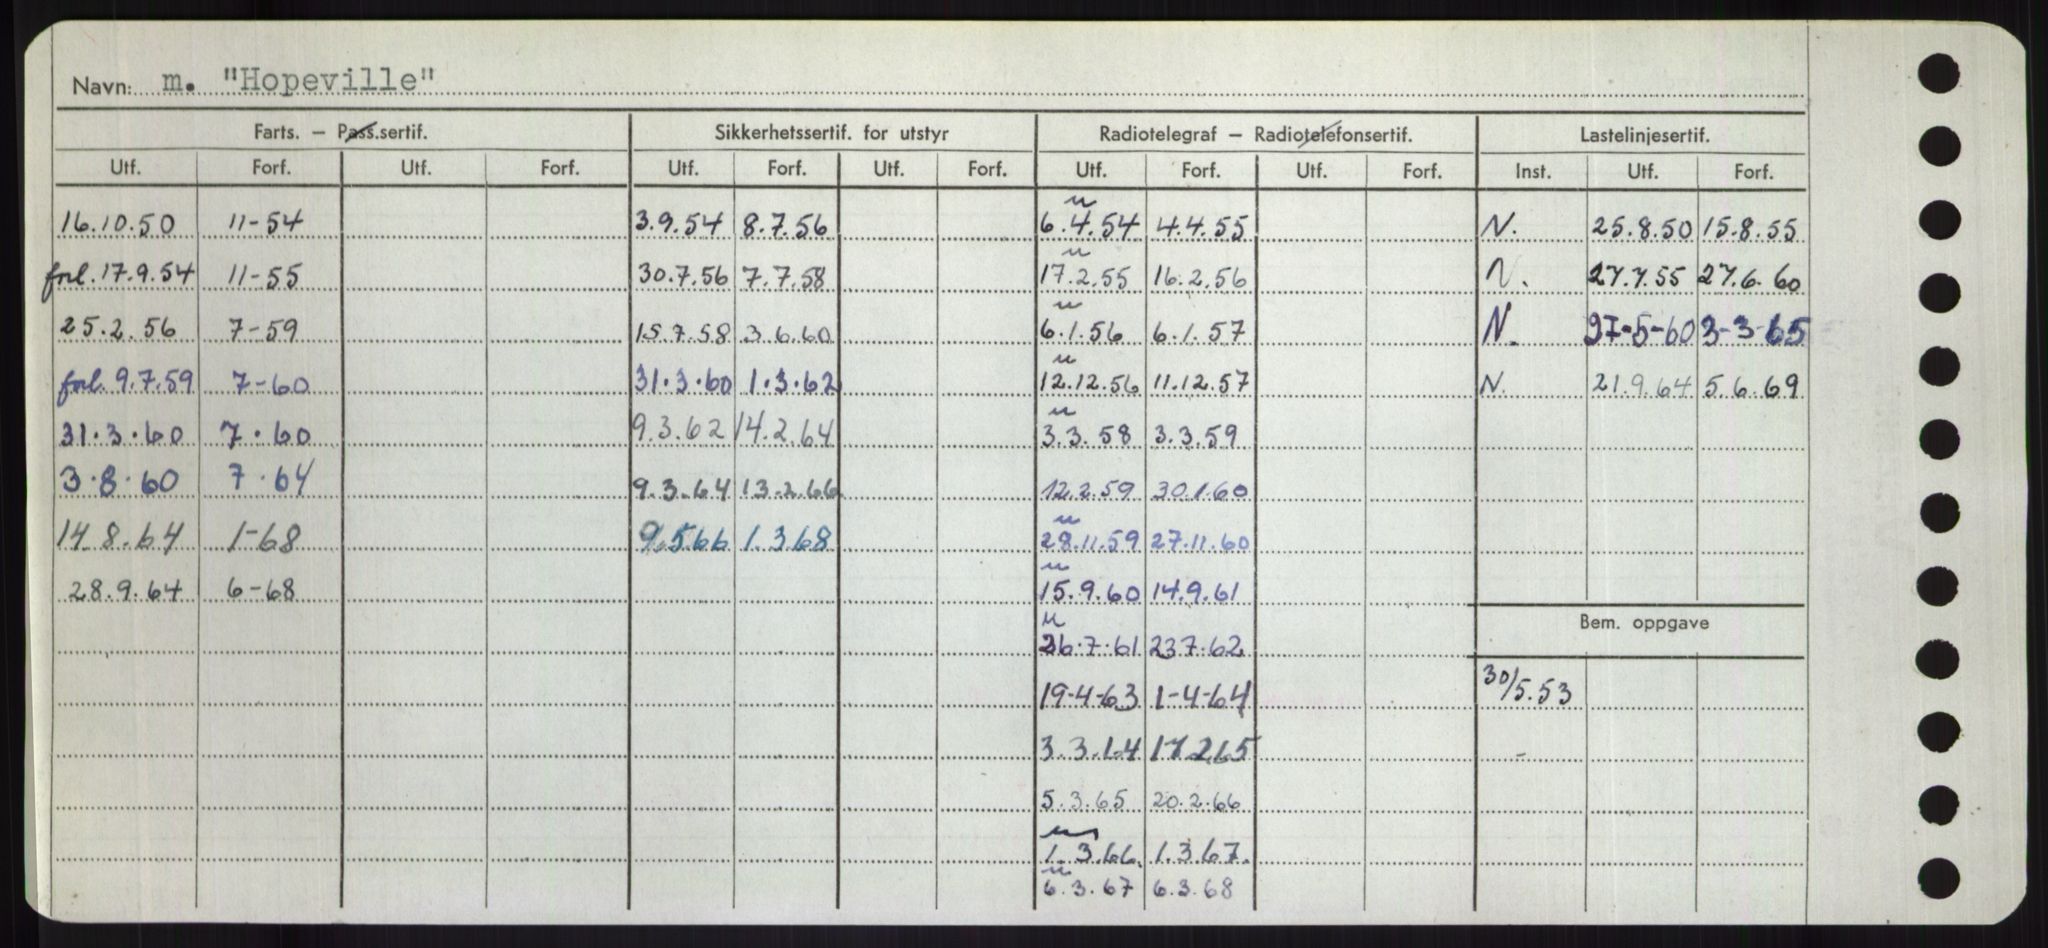 Navn: m. "Hopeville"
Farts. – Pass.sertif. Sikkerhetssertif. for utstyr Radiotelegraf – Radiotelefonsertif. Lastelinjesertif.
Utf. Forf. Utf. Forf. Utf. Forf. Utf. Forf. Utf. Forf. Utf. Forf. Inst. Utf. Forf.
16.10.50 11-54 3.9.54 8.7.56 6.4.54 4.4.55 N. 25.8.50 15.8.55
forl. 17.9.54 11-55 30.7.56 7.7.58 17.2.55 16.2.56 N. 27.7.55 27.6.60
25.2.56 7-59 15.7.58 3 6.60 6.1.56 6.1.57 N. 27-5-60 3-3-65
forl. 9.7.59 7-60 31.3.60 1.3.62 12.12.56 11.12.57 N. 21.9.64 5.6.69
31.3.60 7.60 9.3.62 14.2.64 3.3.58 3.3.59
3.8.60 7.64 9.3.64 13.2.66 12.2.59 30.1.60
14.8.64 1-68 9.5.66 1.3.68 28.11.59 27.11.60
28.9.64 6-68 15.9.60 14.9.61
Bem. oppgave
26.7.61 237.62
30/5.53
19-4-63 1-4-64
3.3.64 17.2.65
5.3.65 20.2.66
1.3.66. 1.3.67.
6.3.67 6.3.68